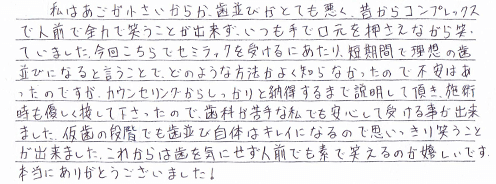 私はあごが小さいからか、歯並びがとても悪く、昔からコンプレックス
で人前で全力で笑うことが出来ず、いつも手で口元を押さえながら笑
っていました。今回こちらでセラミックを受けるにあたり、短期間で理想の歯
並びになると言うことで、どのような方法かよく知らなかったので不安はあ
ったのですが、カウンセリングからしっかりと納得するまで説明して頂き、施術
時も優しく接して下さったので、歯科が苦手な私でも安心して受ける事が出来
ました。仮歯の段階でも歯並び自体はキレイになるので思いっきり笑うこと
が出来ました。これからは歯を気にせず人前でも素で笑えるのが嬉しいです。
本当にありがとうございました!